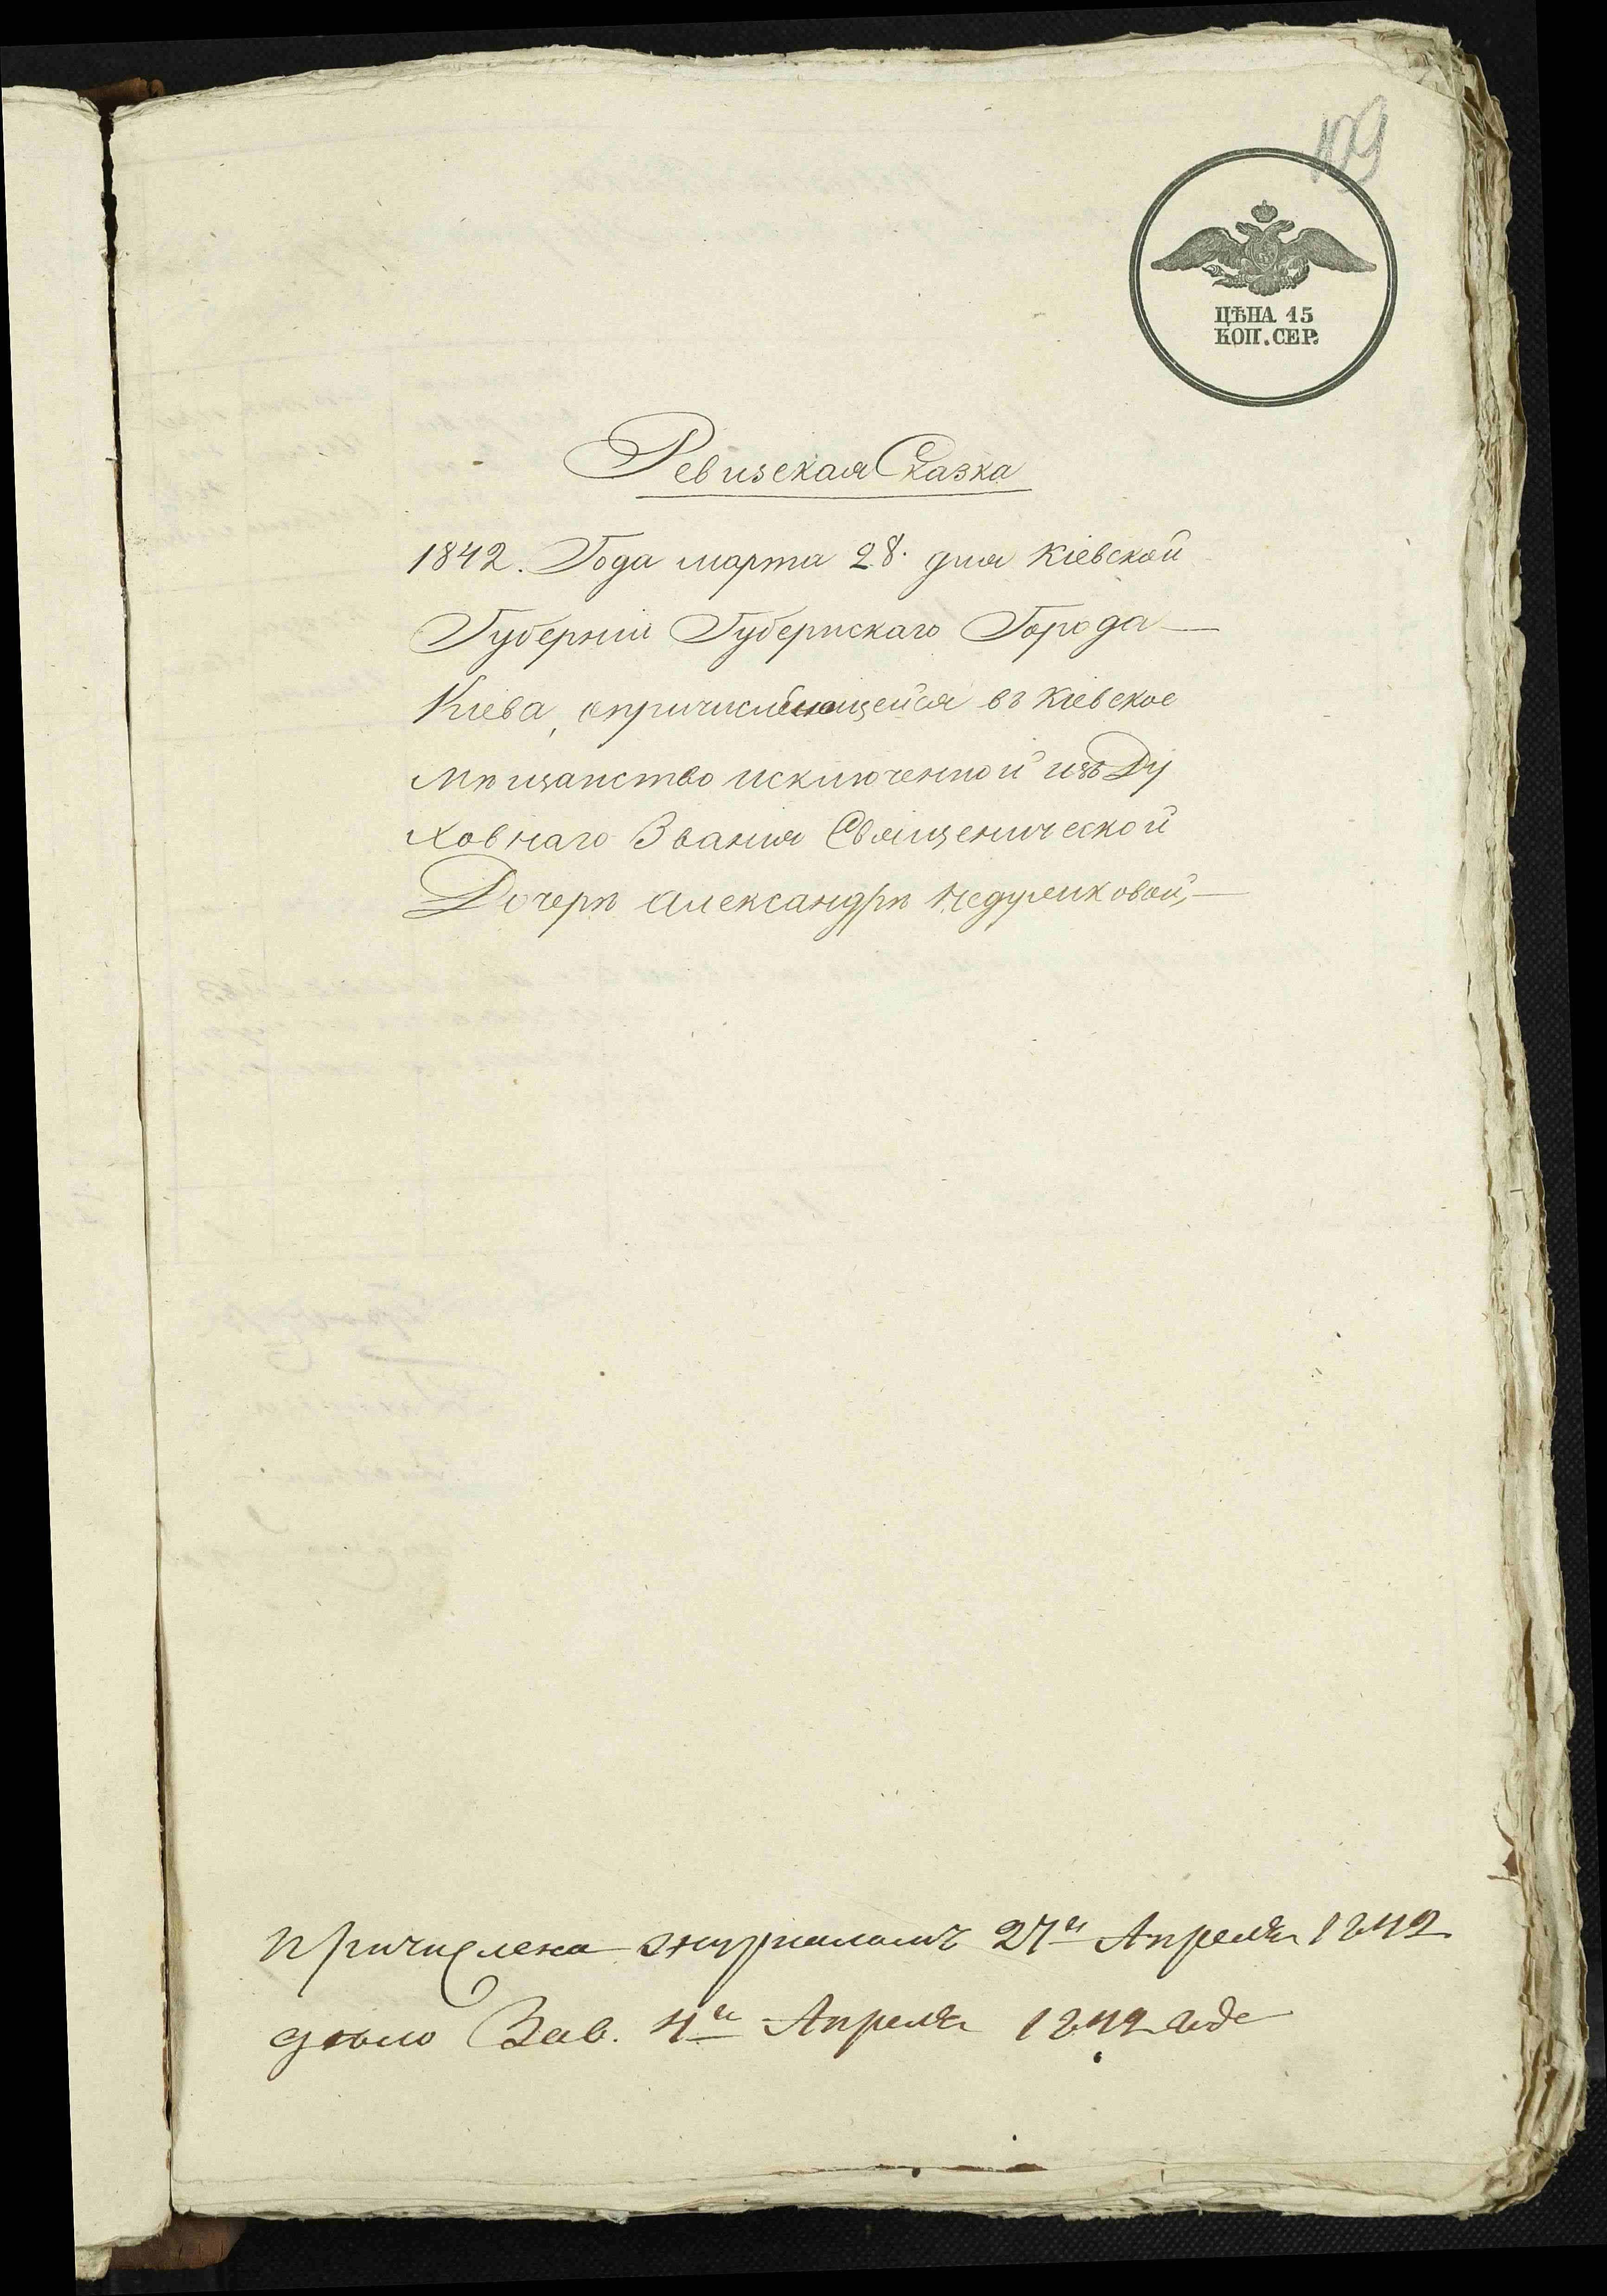 109
ЦѢНА 15
КОП. СЕР.
Ревизская Сказка
1842. Года марта 28. дня Кіевской
Губерніи Губернскаго Города
Кіева, опричисляющейся въ Кіевское
Мѣщанство исключенной изъ Ду
ховнаго Званія Священической
Дочерѣ Александрѣ
Причислена журналомъ 27го Апреля 1842
дѣло Зав. 4го Апреля 1842 года